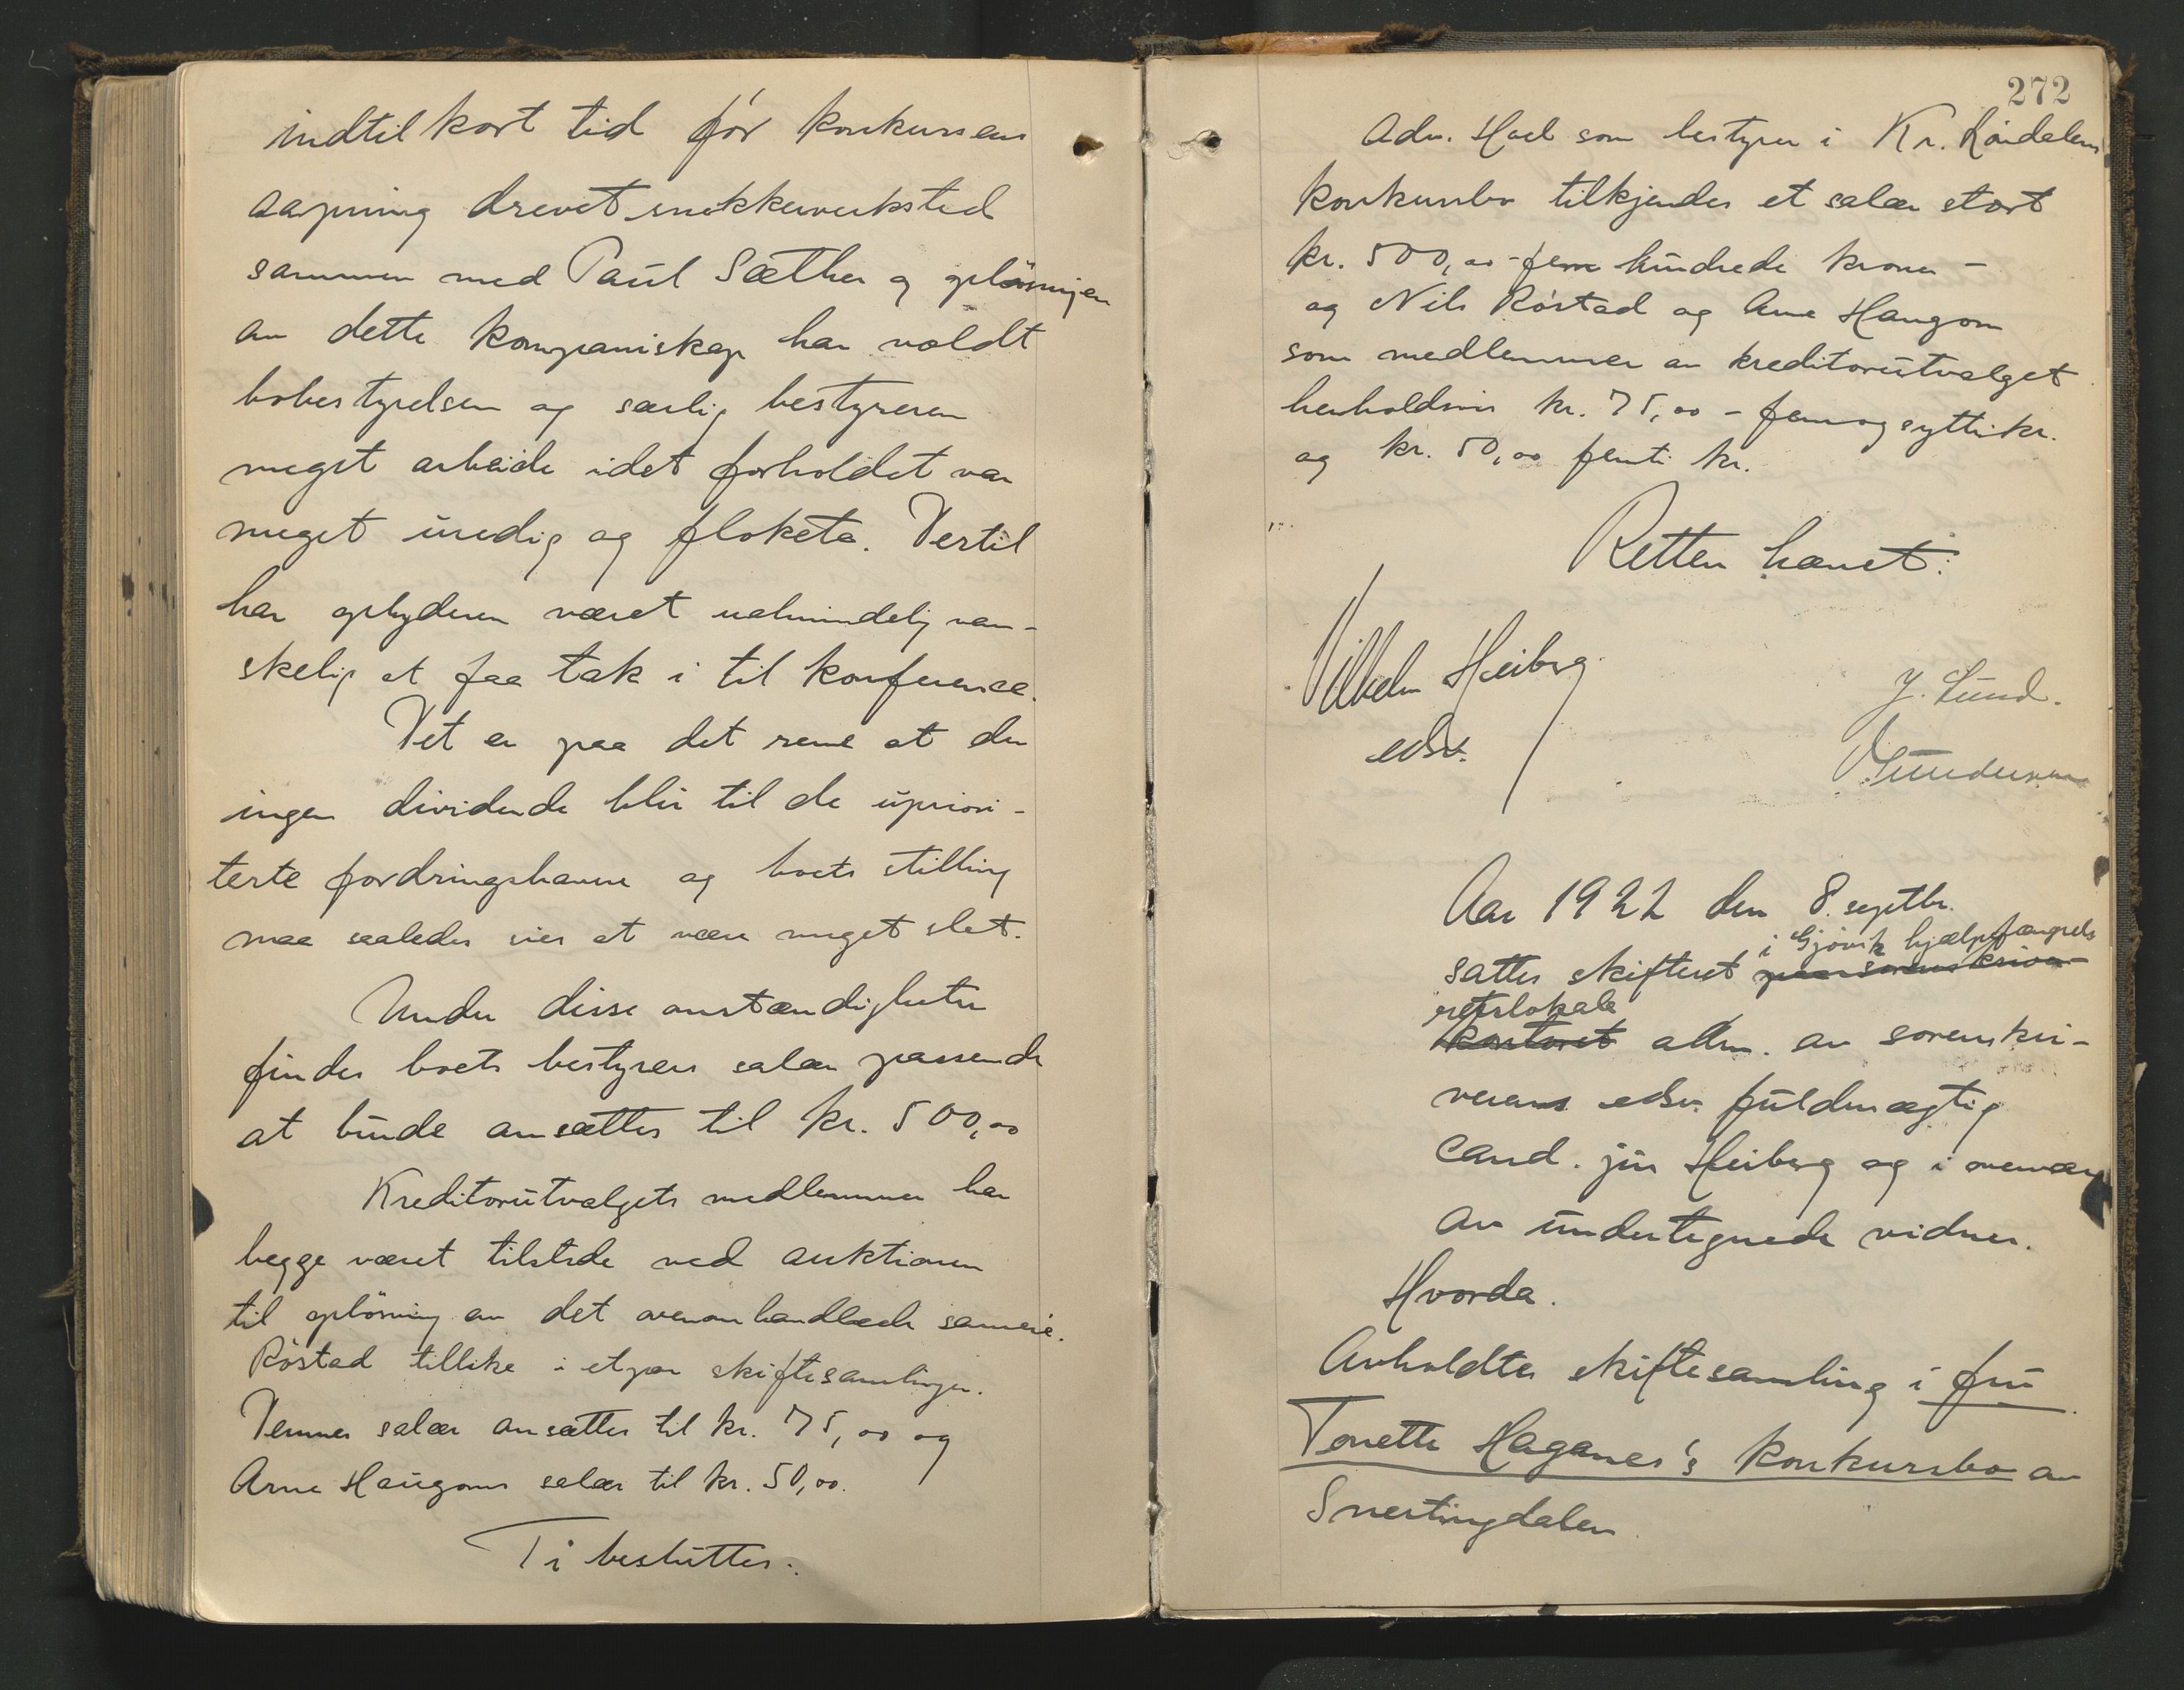 indtil kort tid før konkursens
aapning drevet snekkerverksted
sammen med Paul Sæther og opløsningen
av dette kompaniskap har voldt
bobestyrelsen og særlig bestyreren
meget arbeide idet forholdet var
meget uredig og flokete. Dertil
har opbyderen været ualmindelig van-
skelig at faa tak i til konferance.
Det er paa det rene at der
ingen dividende blir til de upriori-
terte fordringshavere og boets stilling
maa saaledes sies at være meget slet.
Under disse omstændigheter
findes boets bestyrers salær passende
at burde ansættes til kr. 500,00
Kreditorutvalgets medlemmer har
begge været tilstede ved auktionen
til opløsning av det ovenomhandlede sameie.
Røstad tillike i et par skiftesamlinger.
Dennes salær ansættes til kr. 75,00 og
Arne Haugoms salær til kr. 50,00.
Ti besluttes:
272
Adv. Hoel som bestyrer i Kr. Røndalens
konkursbo tilkjendes et salær stort
kr. 500,00 - fem hundrede kroner -
og Nils Røstad og Arne Haugom
som medlemmer av kreditorutvalget
henholdsvis kr. 75,00 - femogsytti kr.
og kr. 50,00 femti kr.
Retten hævet:
Vilhelm Heiberg
edsv.
J. Lund.
Aar 1922 den 8. septbr.
i Gjøvik hjælpefængsels
sattes skifteret paa sorenskriver-
retslokale
kontoret adm. av sorenskri-
verens edsv. fuldmægtig
cand. jur Heiberg og i overvær
av undertegnede vidner.
Hvorda.
Avholdtes skiftesamling i fru
Tonette Haganes's konkursbo av
Snertingdalen